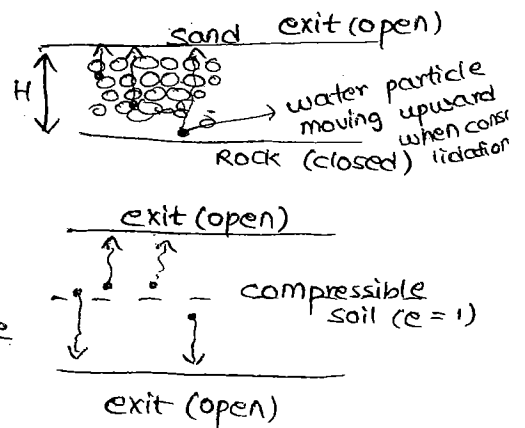 sand exit (open)
H
water particle
moving upward
when conso
lidation
Rock (closed)
exit (open)
compressible
soil (e = 1)
exit (open)